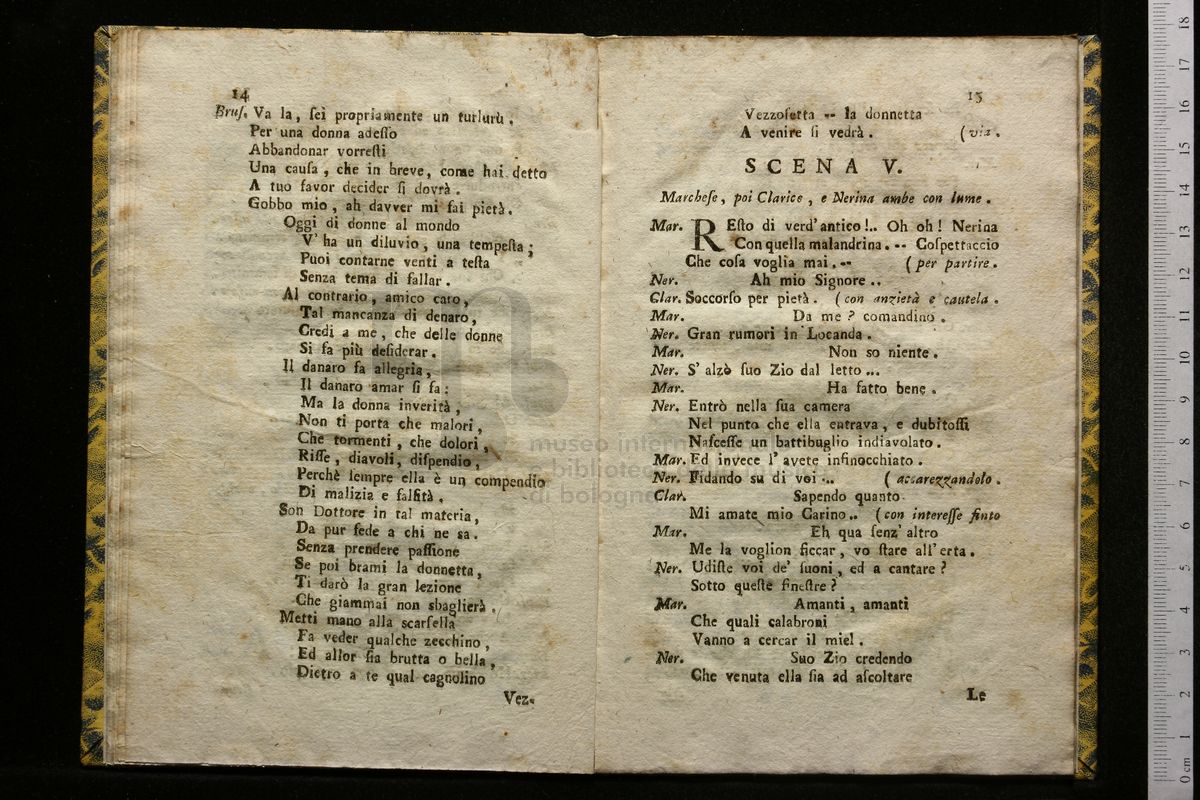 14
Bruſ. Va la, ſei propriamente un turlurù.
Per una donna adeſſo
Abbandonar vorreſti
Una cauſa, che in breve, come hai detto
A tuo favor decider ſi dovrà.
Gobbo mio, ah davver mi fai pietà.
Oggi di donne al mondo
V' ha un diluvio, una tempeſta;
Puoi contarne venti a teſta
Senza tema di fallar.
Al contrario, amico caro,
Tal mancanza di denaro,
Credi a me, che delle donne
Si fa più deſiderar.
Il danaro fa allegria,
Il danaro amar ſi fa:
Ma la donna inverità,
Non ti porta che malori,
Che tormenti, che dolori,
Riſſe, diavoli, diſpendio,
Perchè ſempre ella è un compendio
Di malizia e falſità.
Son Dottore in tal materia,
Da pur fede a chi ne sa.
Senza prendere paſſione
Se poi brami la donnetta,
Ti darò la gran lezione
Che giammai non sbaglierà.
Metti mano alla scarſella
Fa veder qualche zecchino,
Ed allor ſia brutta o bella,
Dietro a te qual cagnolino
Vez-
15
Vezzoſetta -- la donnetta
A venire ſi vedrà. (via.
SCENA V.
Marcheſe, poi Clarice, e Nerina ambe con lume.
Mar. REſto di verd'antico!.. Oh oh! Nerina
Con quella malandrina. -- Coſpettaccio
Che coſa voglia mai. -- (per partire.
Ner. Ah mio Signore..
Clar. Soccorſo per pietà. (con anzietà e cautela.
Mar. Da me? comandino.
Ner. Gran rumori in Locanda.
Mar. Non so niente.
Ner. S' alzò ſuo Zio dal letto...
Mar. Ha fatto bene.
Ner. Entrò nella ſua camera
Nel punto che ella entrava, e dubitoſſi
Naſceſſe un battibuglio indiavolato.
Mar. Ed invece l' avete infinocchiato.
Ner. Fidando su di voi ... (accarezzandolo.
Clar. Sapendo quanto
Mi amate mio Carino.. (con intereſſe finto
Mar. Eh qua ſenz' altro
Me la voglion ficcar, vo ſtare all' erta.
Ner. Udiſte voi de' ſuoni, ed a cantare?
Sotto queſte fineſtre?
Mar. Amanti, amanti
Che quali calabroni
Vanno a cercar il miel.
Ner. Suo Zio credendo
Che venuta ella ſia ad aſcoltare
Le
museo intern
biblioteca
di bologna
18
17
16
15
14
13
12
11
10
9
8
7
6
5
4
3
2
1
0 cm